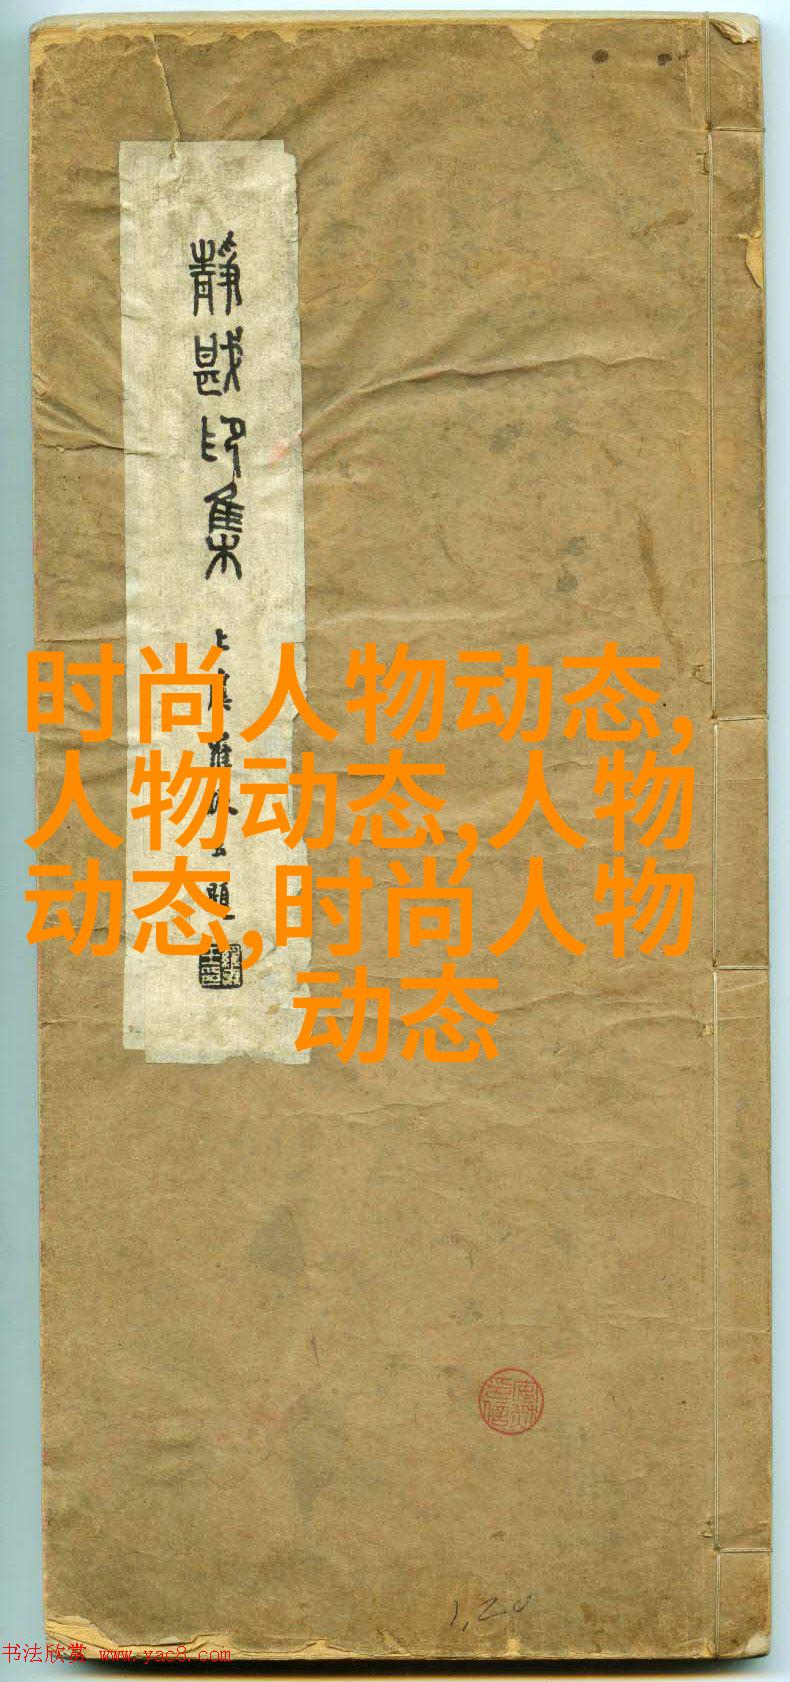 静戡印集
上虞羅振玉題
时尚人物动态,
人物动态,人物
动态,时尚人物
动态
1,20
书法欣赏 www.yac8.com